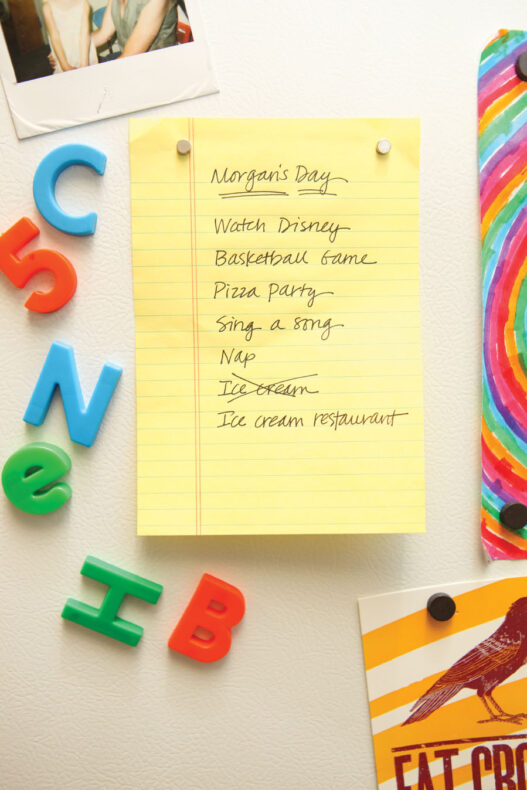 Morgan's Day
Watch Disney
Basketball Game
Pizza Party
Sing a song
Nap
Ice cream
Ice cream restaurant
C
5
N
e
H
B
EAT